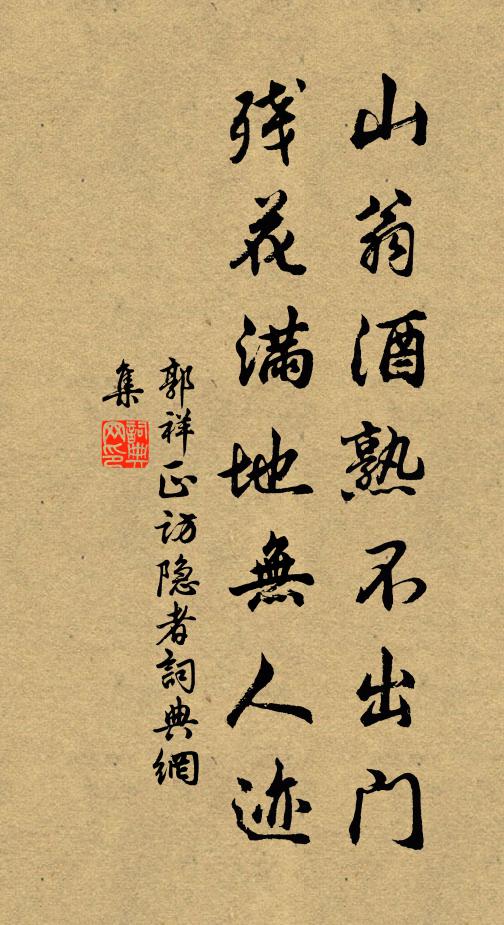 山翁酒熟不出门
残花满地無人迹
郭祥正访隐者詞典網
集
詞典网印